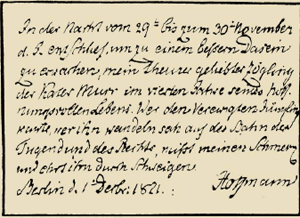 In der Nacht vom 29t bis zum 30t November
d. J. entschlief, um zu einem bessern Dasein
zu erwachen, mein theurer geliebter Zögling
der Kater Murr im vierten Jahre seines hoff
nungsvollen Lebens. Wer den Verewigten Jüngling
kannte, wer ihn wandeln sah auf der Bahn der
Tugend und des Rechts, mißt meinen Schmerz
und ehrt ihn durch Schweigen.
Berlin d. 1t Decbr: 1821. Hoffmann